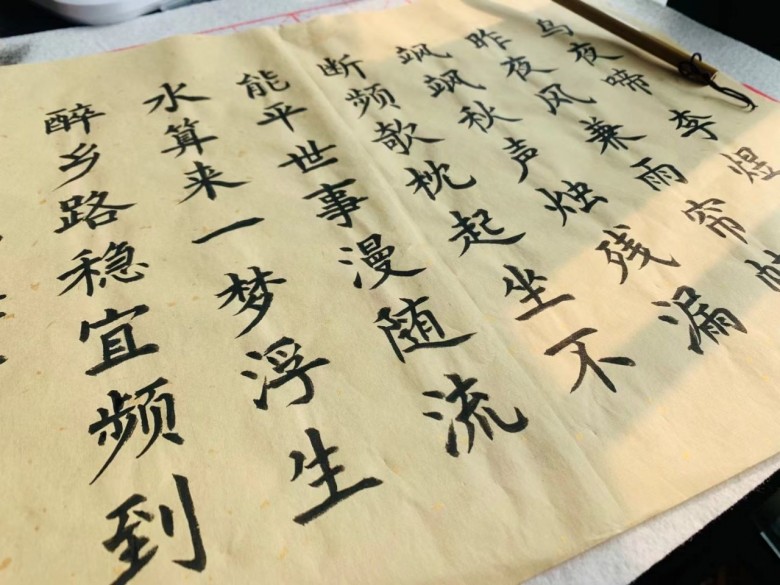 乌夜啼李煜
昨夜风兼雨帘
飒飒秋声烛残漏
断频欹枕起坐不
能平世事漫随流
水算来一梦浮生
醉乡路稳宜频到